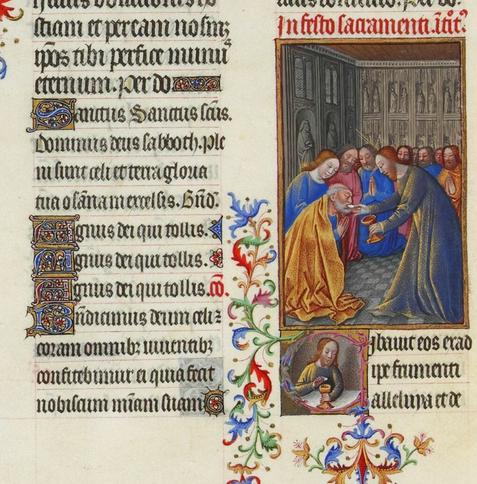 stiam et percam nosmz
ipos tibi perfice munu
eternum. Per do
Sanctus Sanctus scus.
Dominus deus sabboth. Ple
ni sunt celi et terra gloria
tua osanna in excelsis. Bnd.
Agnus dei qui tollis.
Agnus dei qui tollis.
Agnus dei qui tollis. co
Bndicimus deum celiz
coram omnibz viventibz
confitebimur ei quia fecit
nobiscum miam suam
In festo sacramenti. itoit.
Cibavit eos exad
ipe frumenti
alleluya et de